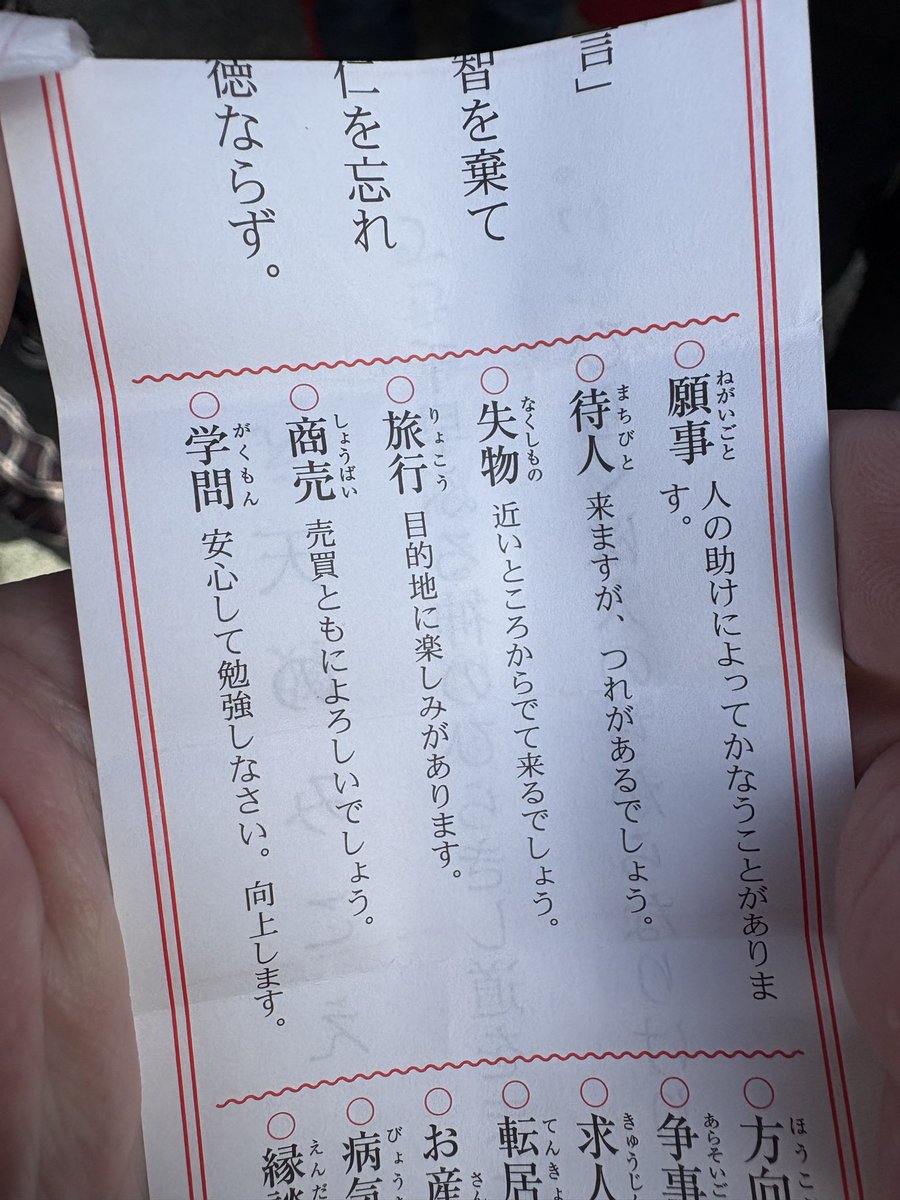 言」
智を棄て
仁を忘れ
徳ならず。
○願事 ねがいごと 人の助けによってかなうことがありま
す。
○待人 まちびと 来ますが、つれがあるでしょう。
○失物 なくしもの 近いところからでて来るでしょう。
○旅行 りょこう 目的地に楽しみがあります。
○商売 しょうばい 売買ともによろしいでしょう。
○学問 がくもん 安心して勉強しなさい。向上します。
○方向 ほうこ
○争事 あらそいご
○求人 きゅうじ
○転居 てんきょ
○お産 さん
○病気 びょう
○縁談 えんだ